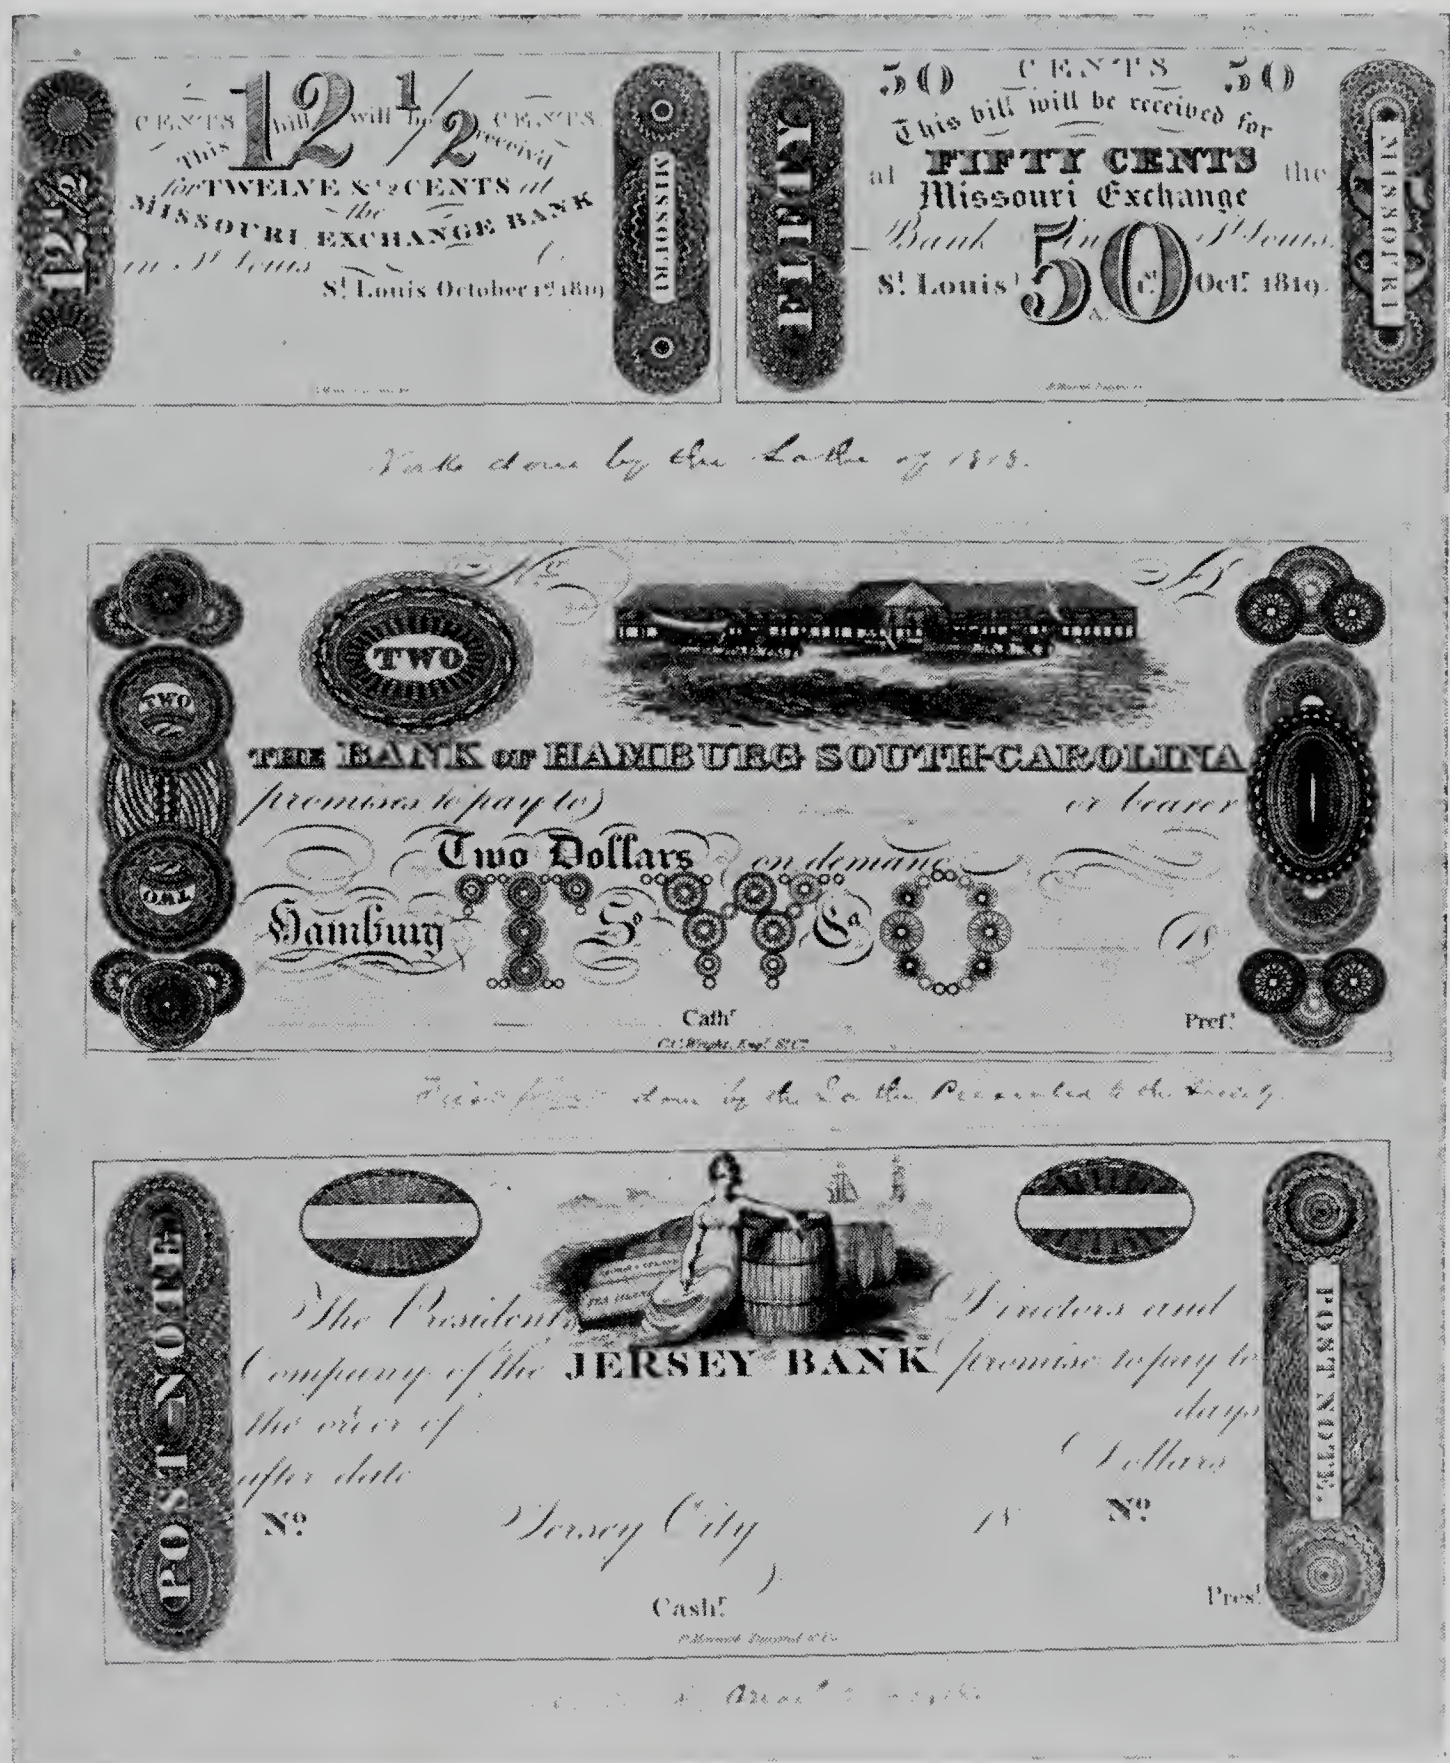 12 1/2
12 1/2
CENTS CENTS
This bill will be receivd
for TWELVE & 1/2 CENTS at
the
MISSOURI EXCHANGE BANK
in St Louis
St. Louis October 1st 1819
MISSOURI
FIFTY
50 CENTS 50
This bill will be received for
at FIFTY CENTS the
Missouri Exchange
Bank in St Louis.
50
St. Louis 1st Octr. 1819.
MISSOURI
done by the Lathe of 1818.
TWO
TWO
No
TWO
THE BANK OF HAMBURG SOUTH-CAROLINA
promises to pay to or bearer
Two Dollars on demand
TWO
Hamburg So Ca 18
Cashr Prest.
C.C. Wright, Engr.
done by the Lathe Presented to the Society
POST-NOTE
The President Directors and
Company of the JERSEY BANK promise to pay to
the order of days
after date Dollars
No. Jersey City 18 No.
Cashr. Prest.
POST NOTE.